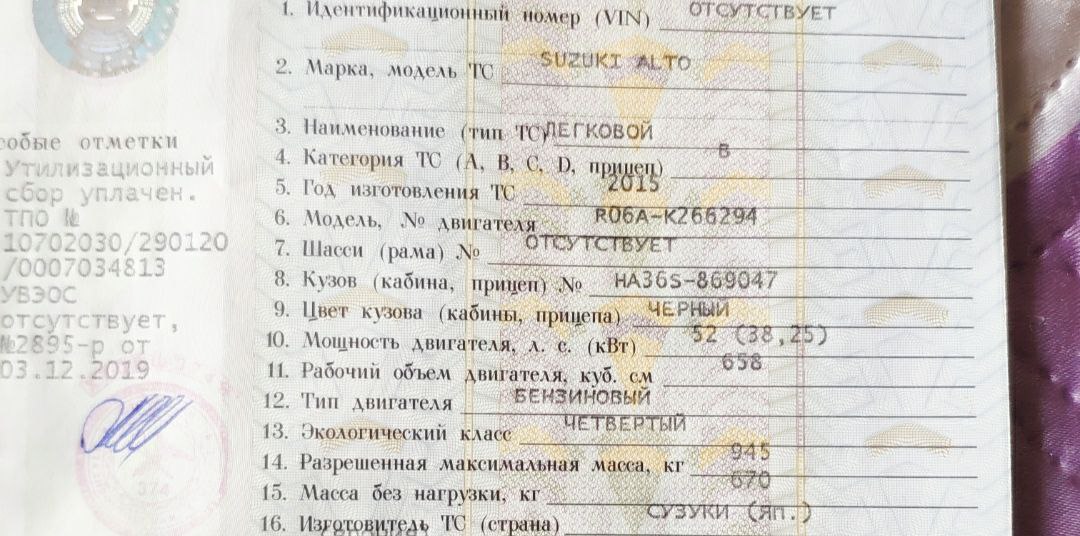 1. Идентификационный номер (VIN) ОТСУТСТВУЕТ
2. Марка, модель ТС SUZUKI ALTO
3. Наименование (тип ТС) ЛЕГКОВОЙ
4. Категория ТС (A, B, C, D, прицеп) B
5. Год изготовления ТС 2015
6. Модель, № двигателя R06A-K266294
7. Шасси (рама) № ОТСУТСТВУЕТ
8. Кузов (кабина, прицеп) № HA36S-869047
9. Цвет кузова (кабины, прицепа) ЧЕРНЫЙ
10. Мощность двигателя, л. с. (кВт) 52 (38,25)
11. Рабочий объем двигателя, куб. см 658
12. Тип двигателя БЕНЗИНОВЫЙ
13. Экологический класс ЧЕТВЕРТЫЙ
14. Разрешенная максимальная масса, кг 945
15. Масса без нагрузки, кг 670
16. Изготовитель ТС (страна) СУЗУКИ (ЯП.)
собые отметки
Утилизационный
сбор уплачен.
ТПО №
10702030/290120
/0007034813
УВЭОС
отсутствует,
№2895-р от
03.12.2019